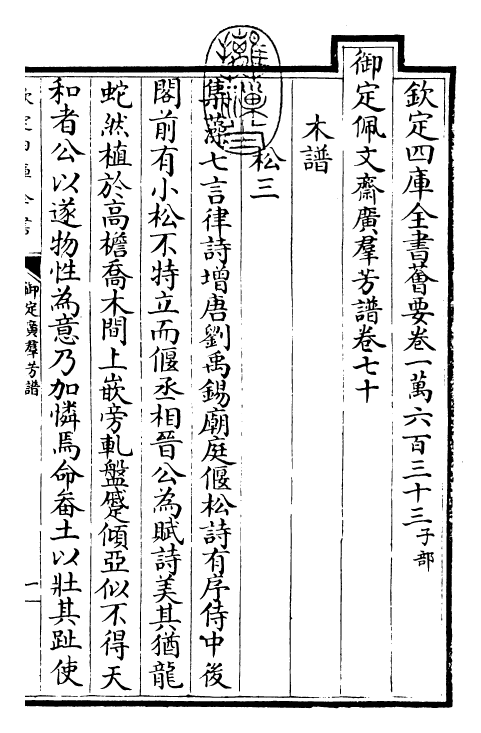 欽定四庫全書薈要卷一萬六百三十三 子部
御定佩文齋廣羣芳譜卷七十
木譜
松三
集藻七言律詩增唐劉禹錫廟庭偃松詩有序侍中後
閣前有小松不特立而偃丞相晉公為賦詩美其猶龍
蛇然植於高檐喬木間上嵌旁軋盤蹙傾亞似不得天
和者公以遂物性為意乃加憐焉命畚土以壯其趾使
欽定四庫全書
御定廣羣芳譜
一